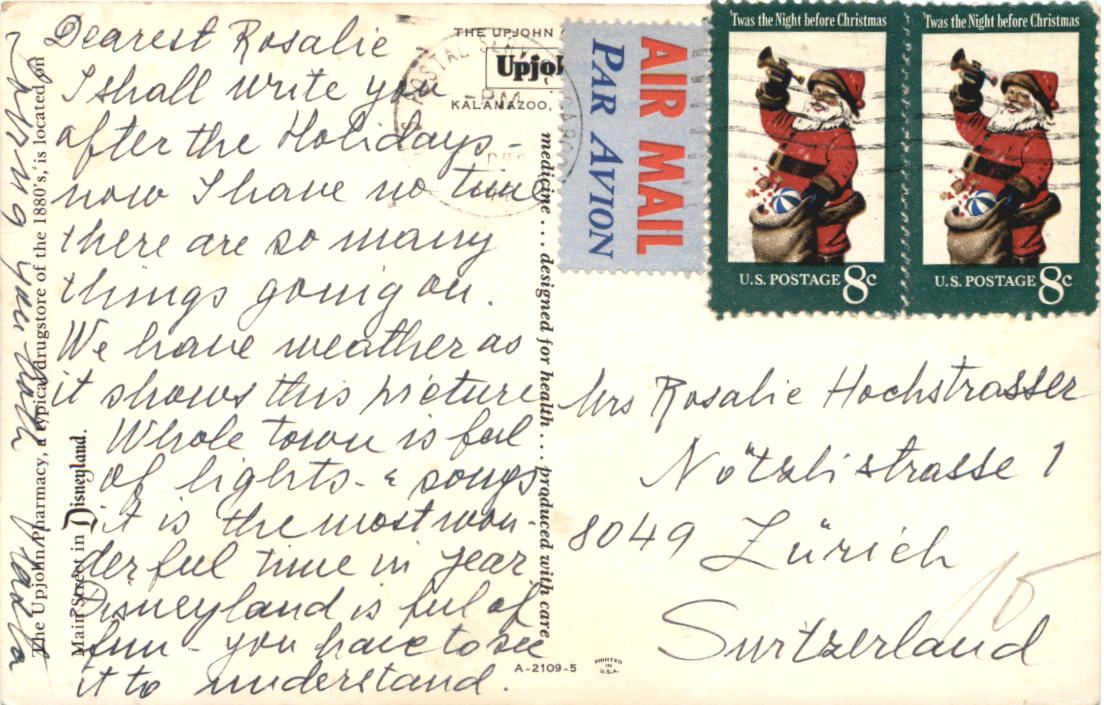 Dearest Rosalie
I shall write you
after the Holidays -
now I have no time
there are so many
things going on.
We have weather as
it shows this picture
Whole town is ful
of lights - & songs
it is the most won-
derful time in year
Disneyland is ful of
fun - you have to see
it to understand.
The Upjohn Pharmacy, a typical drugstore of the 1880's, is located on
Main Street in Disneyland.
THE UPJOHN
Upjoh
KALAMAZOO,
medicine . . . designed for health . . . produced with care
A-2109-5
PRINTED
IN
U.S.A.
AIR MAIL
PAR AVION
'Twas the Night before Christmas
U.S. POSTAGE 8c
'Twas the Night before Christmas
U.S. POSTAGE 8c
Mrs Rosalie Hochstrasser
Nötzlistrasse 1
8049 Zürich
Switzerland